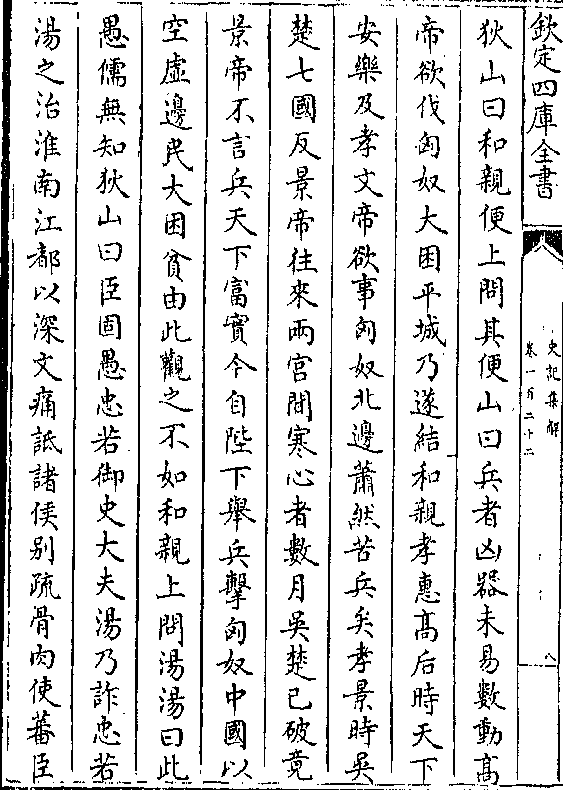 欽定四庫全書
史記集解
卷一百二十二
八
狄山曰和親便上問其便山曰兵者凶器未易數動髙
帝欲伐匈奴大困平城乃遂結和親孝惠髙后時天下
安樂及孝文帝欲事匈奴北邊蕭然苦兵矣孝景時吳
楚七國反景帝往來兩宫間寒心者數月吳楚已破竟
景帝不言兵天下富實今自陛下舉兵擊匈奴中國以
空虛邊民大困貧由此觀之不如和親上問湯湯曰此
愚儒無知狄山曰臣固愚忠若御史大夫湯乃詐忠若
湯之治淮南江都以深文痛詆諸侯别疏骨肉使蕃臣